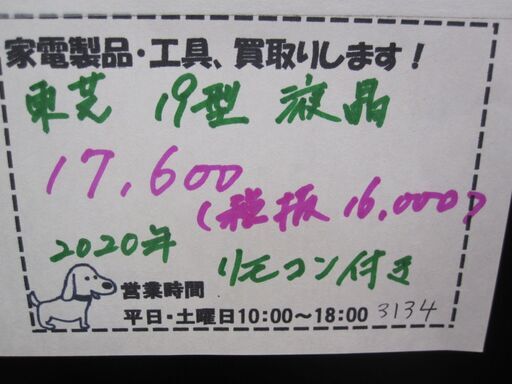 家電製品・工具、買取りします！
東芝 19型 液晶
17,600
(税抜 16,000)
2020年 リモコン付き
営業時間
平日・土曜日10:00～18:00 3134